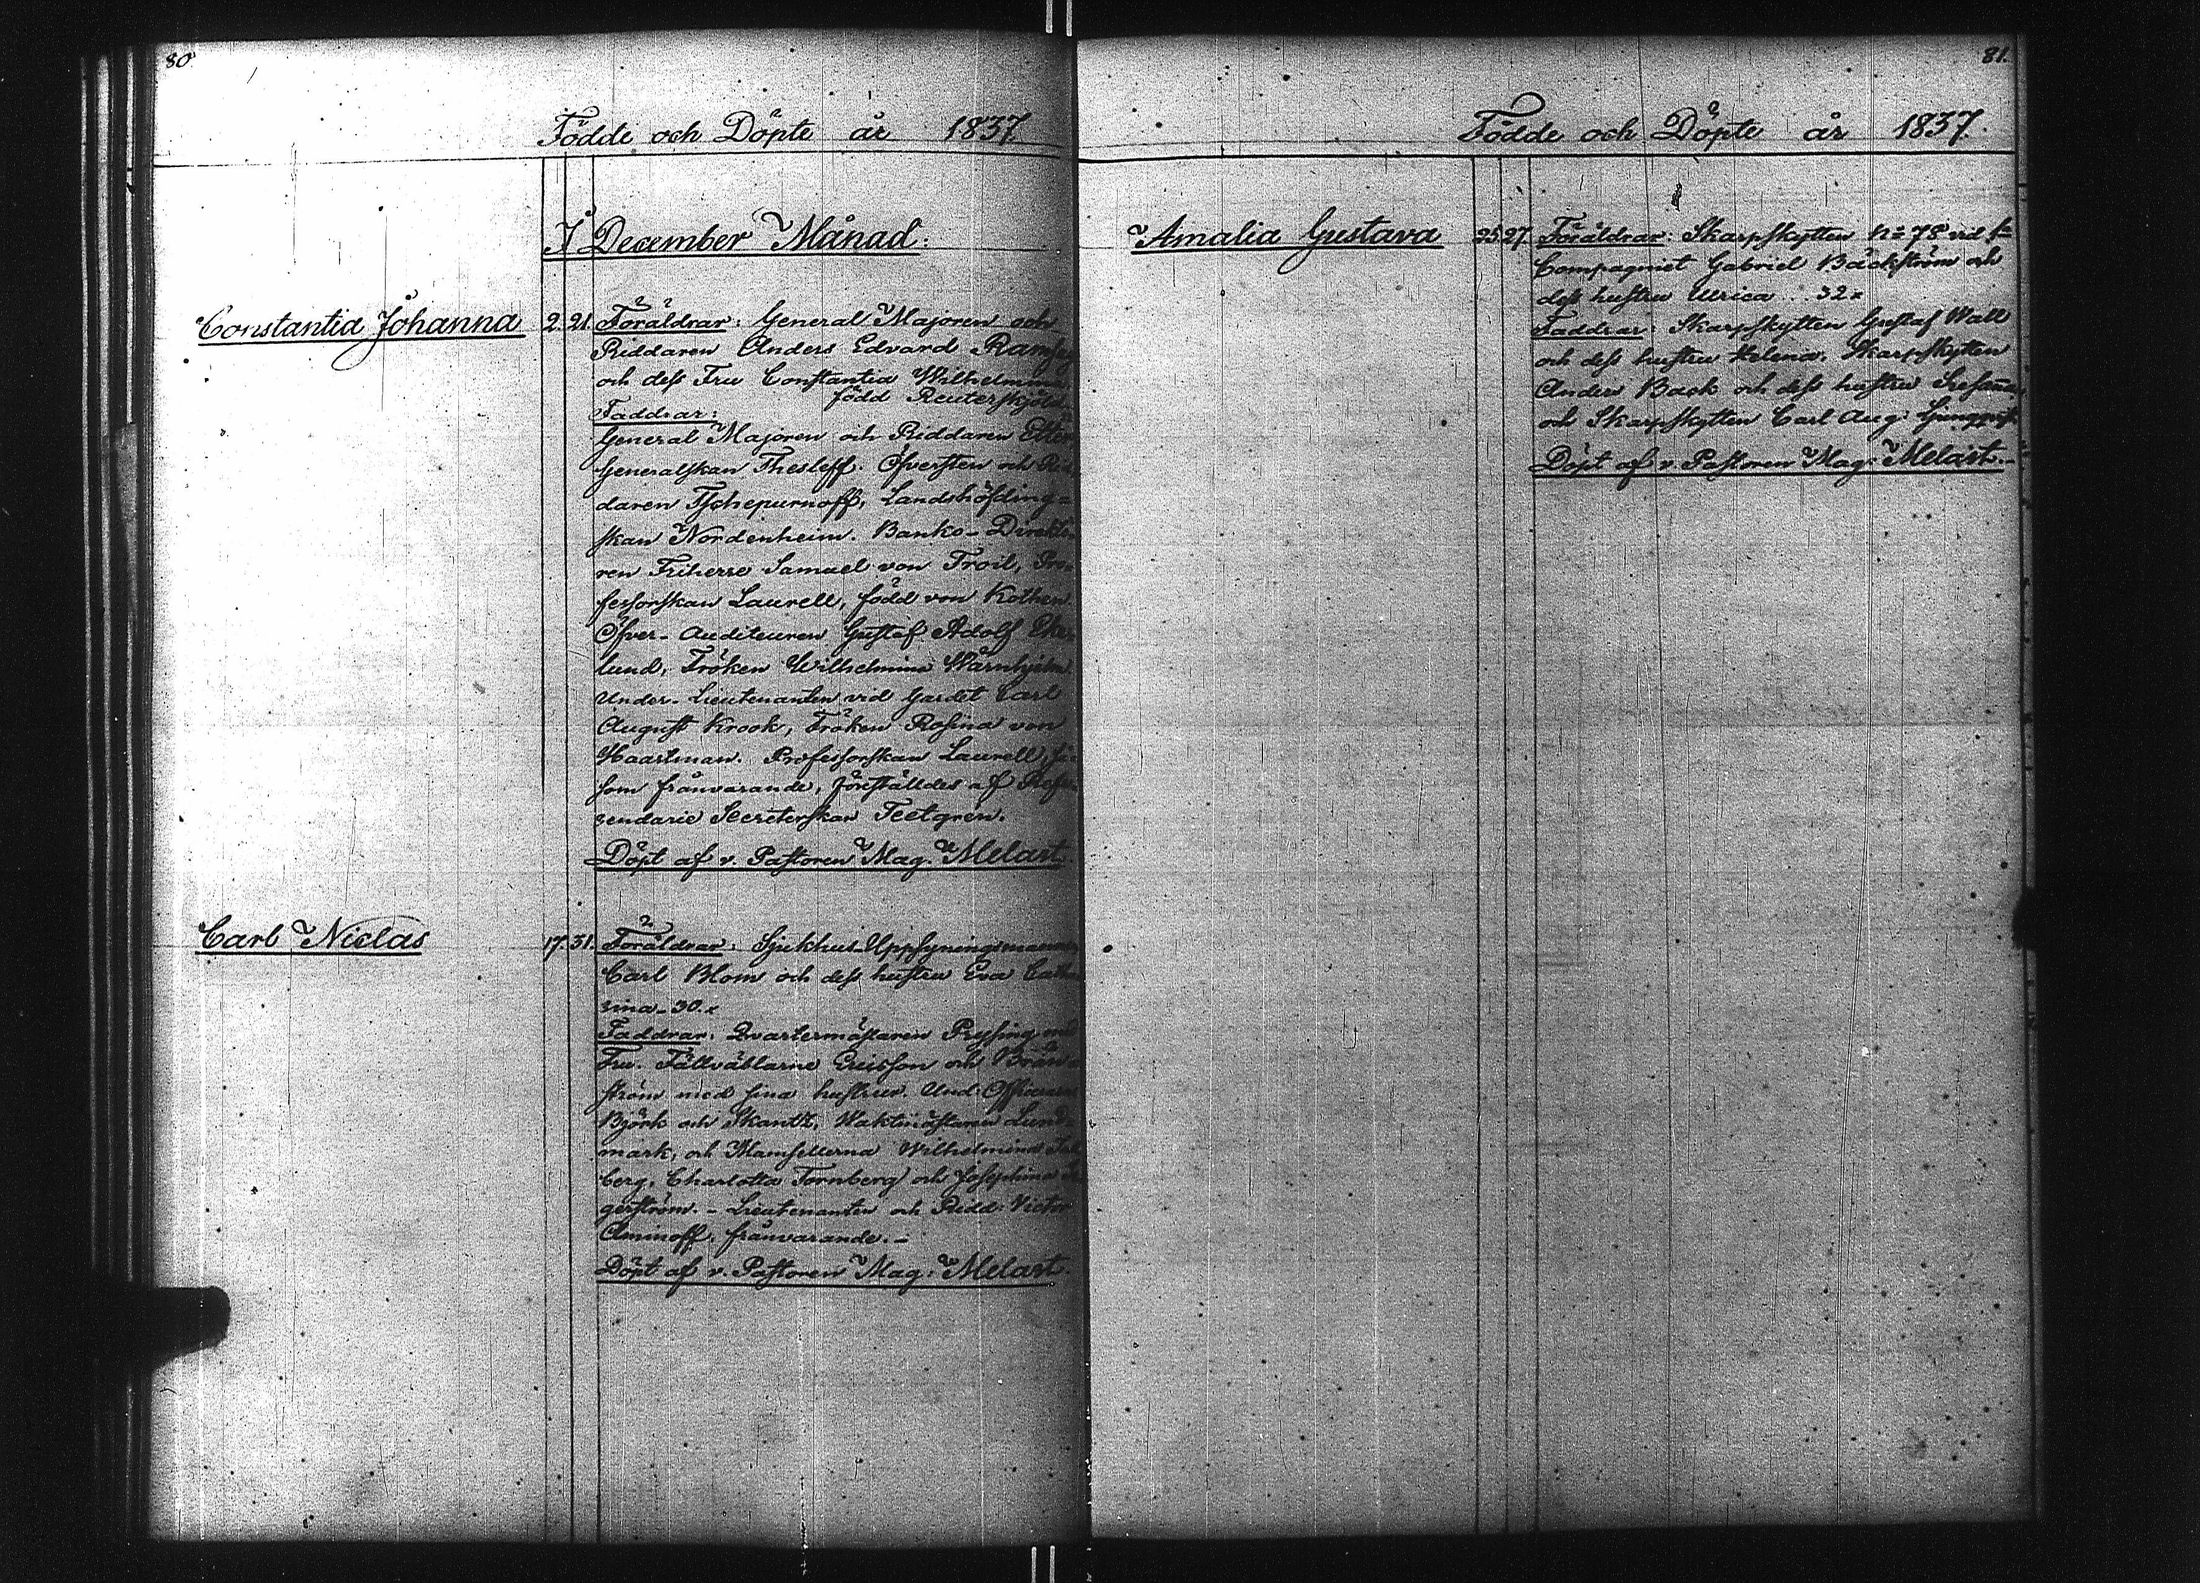 80.
Födde och Döpte år 1837
I December Månad:
Constantia Johanna 2. 21. Föräldrar: General Majoren och
Riddaren Anders Edvard Ramsay
och dess Fru Constantia Wilhelmina
född Reuterskjöld
Faddrar:
General Majoren och Riddaren Etter
Generalskan Thesleff. Öfversten och Rid
daren Tschepurnoff, Landshöfding=
skan Nordenheim. Banko-Direktö
ren Friherre Samuel von Troil, Pro
fessorskan Laurell, född von Kothen.
Öfver-Auditeuren Gustaf Adolf Eke
lund, Fröken Wilhelmina Wärnhjelm.
Under-Lieutenanten vid Gardet Carl
August Krook, Fröken Rosina von
Haartman. Professorskan Laurell,
som frånvarande, föreställdes af Refe
rendarie Secreterskan Teetgren.
Döpt af v. Pastoren Mag. Melart
Carl Niclas 17. 31. Föräldrar: Sjukhus-Uppsyningsmannen
Carl Blom och dess hustru Eva Catha
rina - 30. x
Faddrar: Qvartermästaren Pryssing med
Fru. Fältväblarne och
ström med sina hustrur. Und: Officerarne
Björk och Skantz, Waktmästaren Lund
mark, och Mamsellerna Wilhelmina
berg, Charlotta Tornberg och Josephina
gerström. - Lieutenanten och Ridd: Victor
Aminoff, frånvarande. -
Döpt af v. Pastoren Mag: Melart
81.
Födde och Döpte år 1837.
Amalia Gustava 25. 27. Föräldrar: Skarpskytten No 78 vid
Compagniet Gabriel Bäckström och
dess hustru Ulrica .. 32 x
Faddrar: Skarpskytten Gustaf Wall
och dess hustru Helena. Skarpskytten
Anders Back och dess hustru
och Skarpskytten Carl Aug: Ljungqvist
Döpt af v. Pastoren Mag: Melart. -